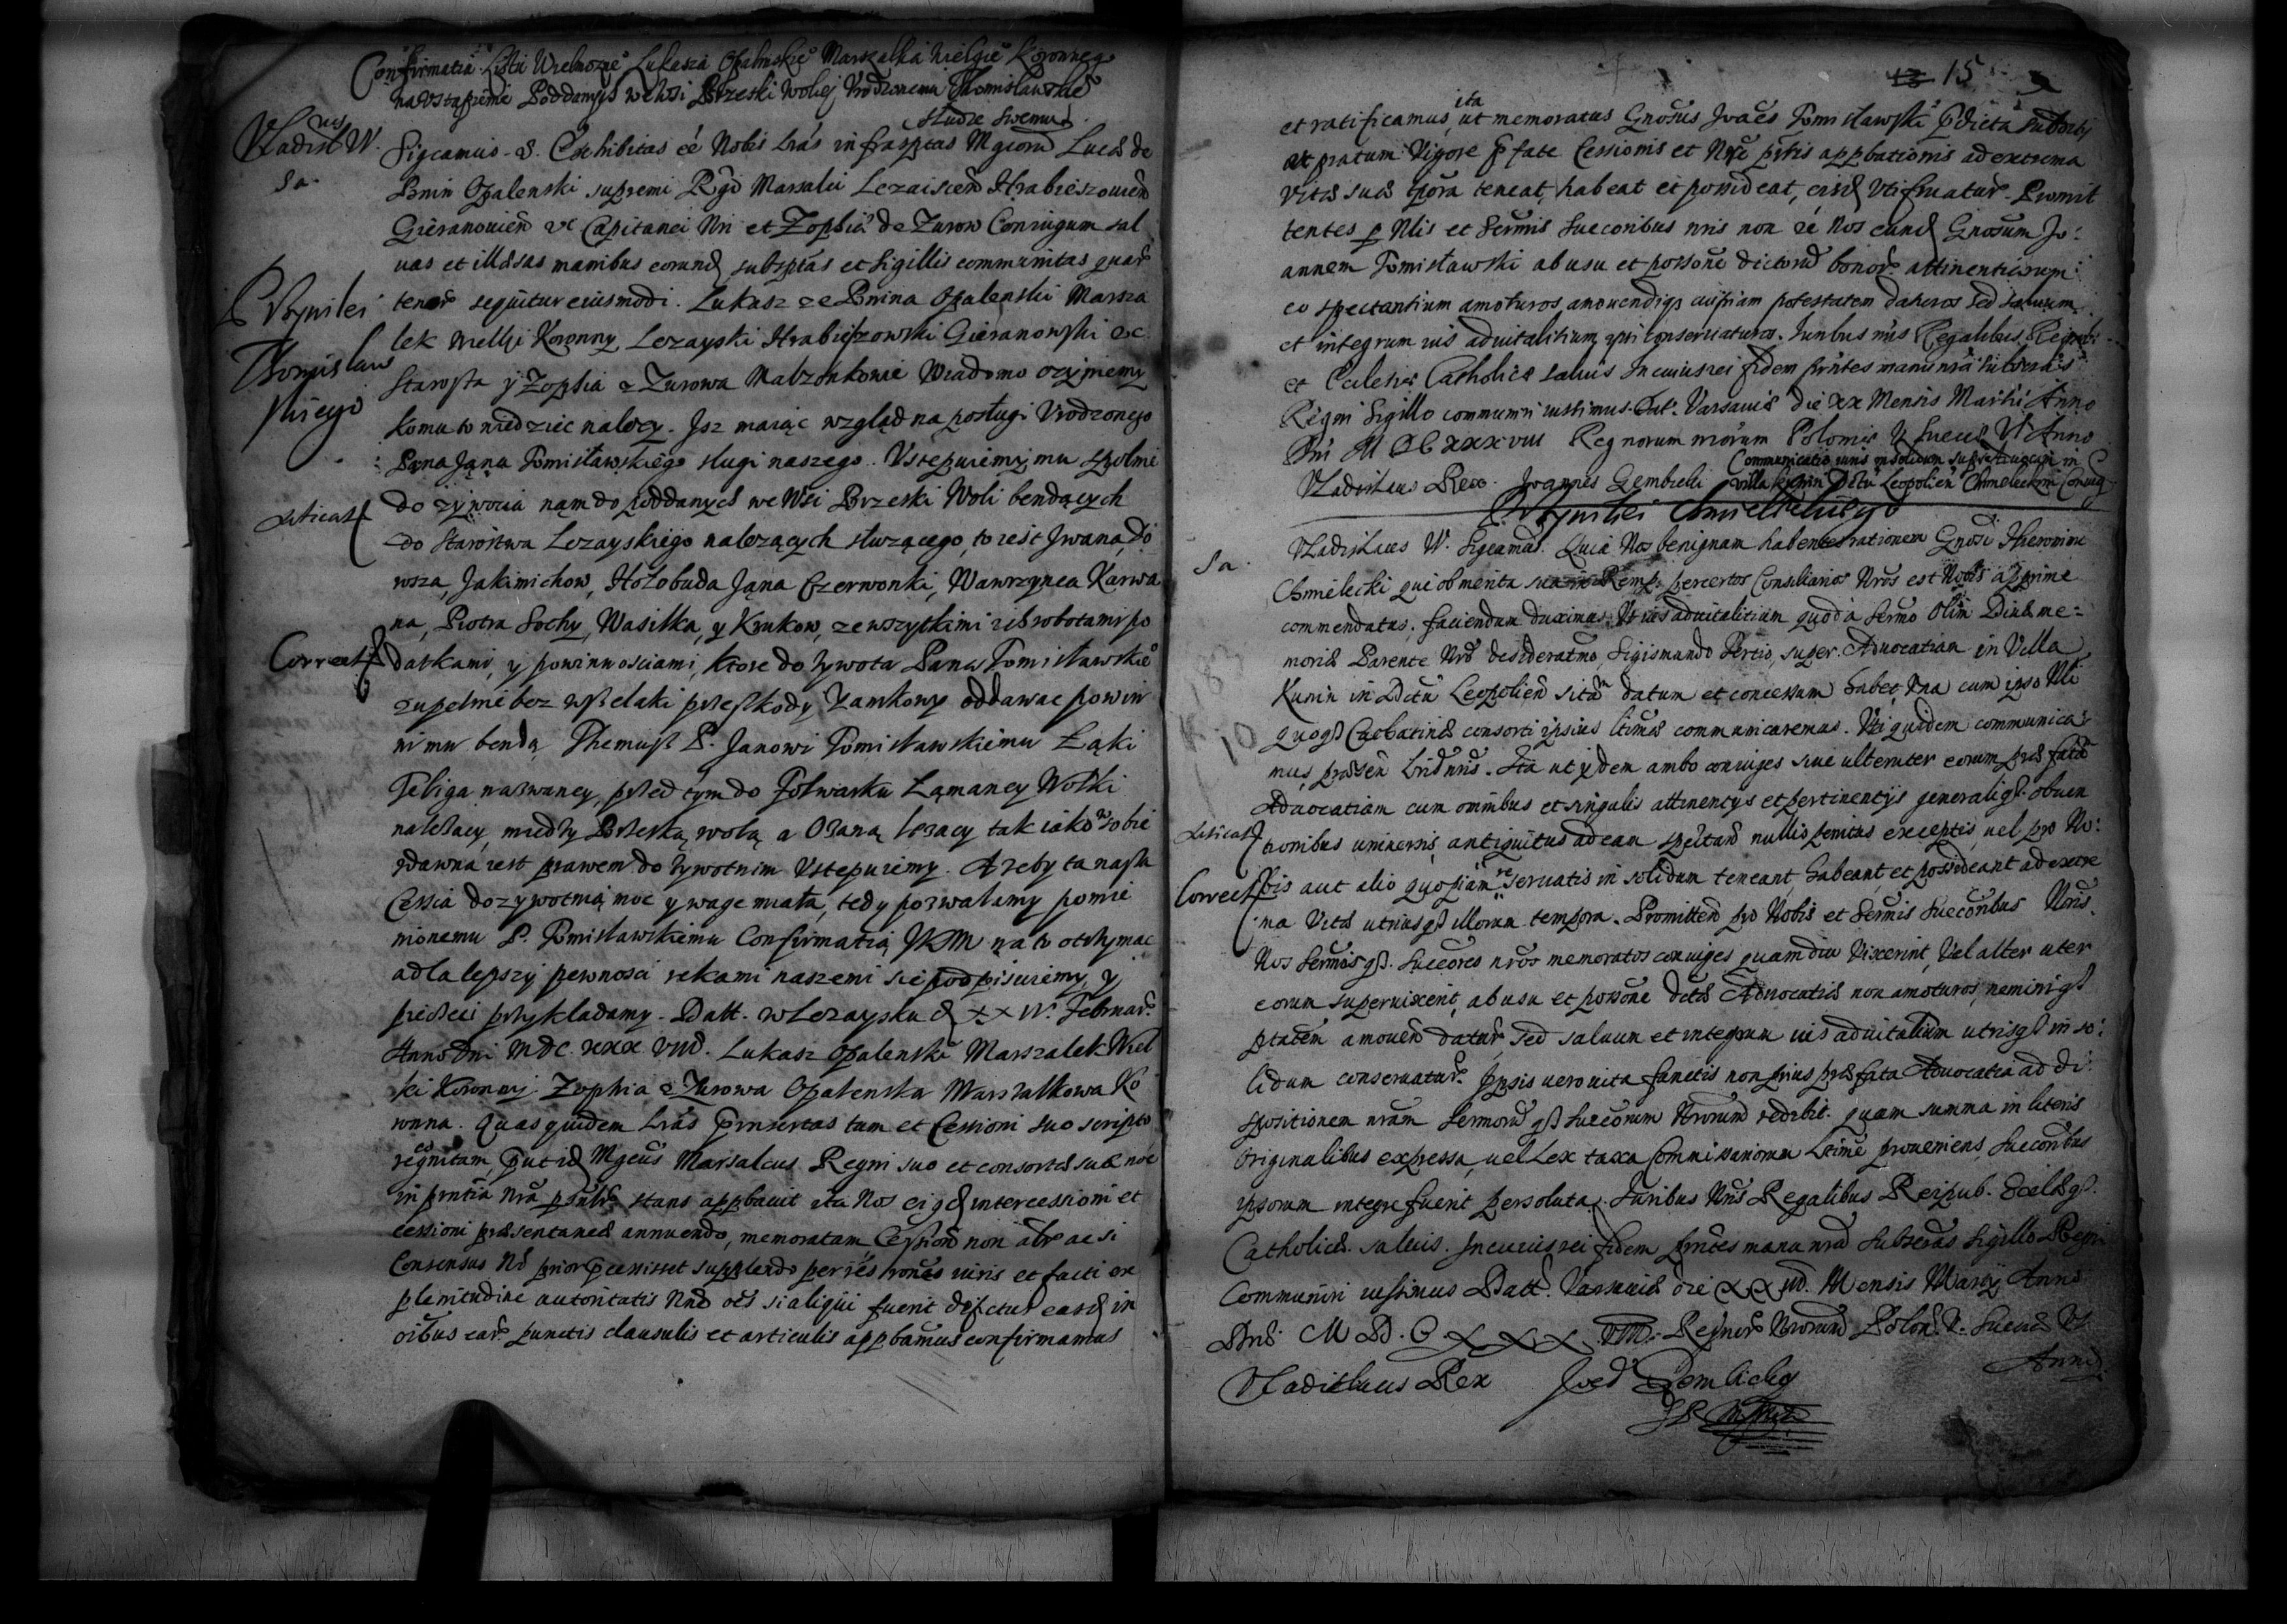 Confirmatia Listu Wielmoznego Lukasza Opalinskiego Marszalka Wielgie Koronneg
na Ustąpienie Poddanych we Wsi Brzeski Woliej Urodzonemu Tomisławskie
słudze swemu
Vladisl W.
Sa.
Sigcamus. Exhibitas eé Nobis Lrás infrasptas Mgcorū Lucæ de
Bnin Opalenski supremi Rgni Marsalci Lezaiscen Hrabieszouien
Gieranouien ac Capitanei Nri et Zophiæ de Zurow Coniugum sal
uas et illæsas manibus eorund subsptas et sigillis communitas quar
Przywilei
Thomisław
skiego
tenor sequitur eiusmodi. Lukasz ze Bnina Opalenski Marsza
lek Wielki Koronny, Lezayski Hrabieszowski Gieranowski etc
Starosta y Zophia z Zurowa Malzonkowie Wiadomo czyniemy
komu to wiedziec nalezy. Isz maiąc wzgląd na posługi Urodzonego
Pana Jana Tomisławskiego sługi naszego. Ustepuiemy mu spolnie
do zywocia nam do poddanych we Wsi Brzeski Woli bendących
Lecticat
do Starostwa Lezayskiego nalezących słuzącego, to iest Jwana, Do
wsza, Jakimichow, Hołobuda Jana Czerwonki, Wawrzynca Karwa
na, Piotra Sochy, Wasilka, y Krukow, ze wszytkimi ich robotami po
Correct
datkami, y powinnosciami, ktore do zywota Pana Tomisławskie
zupełnie bez wszelaki przeszkody Zamkowy oddawac powin
ni mu bendą Themusz P. Janowi Tomisławskiemu Łąki
Teliga nazwaney, przed tym do Folwarku Łamaney Wolki
nalezacy, miedzy Brzeską wolą a Ozaną lezacy tak iako sobie
zdawna iest prawem do zywotnim Ustepuiemy. A zeby ta nasza
Cessia dozywotnią moc y wage miała, tedy pozwalamy pomie
nionemu P. Tomisławskiemu Confirmatią JKM na to otrzymac
a dla lepszy pewnosci rekami naszemi sie podpisuiemy, y
pieczeci przykladamy. Datt. w Lezaysku d XX IV. Februar.
Anno Dni MDC XXX VIII. Lukasz Opalenski Marszalek Wiel
ki Koronny. Zophia z Zurowa Opalenska Marszalkowa Ko
ronna. Quas quidem Lras prinsertas tum et Cessioni suo scripto
recognitam, put id Mgcus Marsalcus Regni suo et consortis suæ noē
in pntia Nra psonlr stans appbauit ita Nos eiqd intercessioni et
cessioni præsentaneæ annuendo, memoratam Cession non alr ac si
Consensus Nr prior pcessisset supplendo per nos hones iuris et facti ex
plenitudine autoritatis Nræ oēs si aliqui fuerit defctus easd in
oibus ear punctis clausulis et articulis appbamus confirmamus
13 15
et ratificamus, ita ut memoratus Gnosus Joaēs Tomisławski pdictā subditos
ac pratum Vigore pfate Cessionis et Nræ pntis appbationis ad extrema
vitæ suæ tpora teneat, habeat et possideat, eisd Utifruatur. Promit
tentes p Nos et Sermis Succoribus nris non eé Nos eund Gnosum Jo:
annem Tomisławski ab usu et possone dictorū bonor. attinentiarum
eo spectantium amoturos amouendiqs cuipiam potestatem daturos sed saluum
et integrum ius aduitalitium ipsi conseruaturos. Iuribus nris Regalibus Reipub
et Eclesiæ Catholicæ saluis In cuius rei fidem pntes manu nrā subscras
Regni Sigillo communiri iussimus. Dat. Varsauiæ die XX Mensis Martii Anno
Dni M DC XXX VIII Regnorum nrorum Poloniæ V Sueciæ VI Anno
Vladislaus Rex. Joannes Gembicki
Communicatio iuris in solidum supra advocatiam in
Villa Kunin Dctu Leopolien Chmieleckim Coniug.
Przywilei Chmielickiego
Sa.
Vladislaus IV. Sigcamus. Quia Nos benignam habentes rationem Gnosi Hieronimi
Chmielecki qui ob merita sua in Remp. per certos Consiliarios Nros est Nobis apprime
commendatus, faciendum duximus, Ut ius aduitalitium quod a Sermo Olim Diuæ me:
moriæ Parente Nrō desideratmo, Sigismundo Tertio, super Aduocatiam in Villa
Kunin in Dctu Leopolien sitā datum et concessum habet, Una cum ipso Nli
quoqs Catharinæ consorti ipsius Ltimæ communicaremus. Uti quidem communica
mus, præsen Lris nris. Ita ut ijdem ambo coniuges siue alteruter eorum præfatā
Aduocatiam cum omnibus et singulis attinentijs et pertinentijs generaliqs obuen
Lecticat
tionibus uniuersis, antiquitus ad eam spectan nullis penitus exceptis, uel pro No:
Correct
bis aut alio quopiam reseruatis in solidum teneant, habeant, et possideant ad extre
ma Vitæ utriusqs illorum tempora. Promitten pro Nobis et Sermis Succoribus Nris
Nos Sermosqs. Succores nros memoratos coniuges quamdiu Vixerint, Vel alter uter
eorum superuixerit, ab usu et possone dctæ Aduocatiæ non amoturos, neminiqs
ptatem amouen datur, sed saluum et integrum ius aduitalitium utrisqs in so:
lidum conseruatur. Ipsis uero uita functis non prius præfata Aduocatia ad di:
spositionem nram Sermorū qs Succorum Nrorum redibit. quam summa in literis
Originalibus expressa, uel Lex taxa Commissariorum Ltime proueniens, Succoribus
ipsorum integre fuerit persoluta. Iuribus Nris Regalibus Reipub. Ecclæqs.
Catholicæ saluis. In cuius rei fidem pntes manu nrā subscras Sigillo Regni
Communiri iussimus Datt. Varsauiæ die XX III. Mensis Martij Anno
Dni. M D. C XXX VIII. Regnor Nrorum Polon. V. Sueciæ VI
Anno
Vladislaus Rex Joēs Gembicky